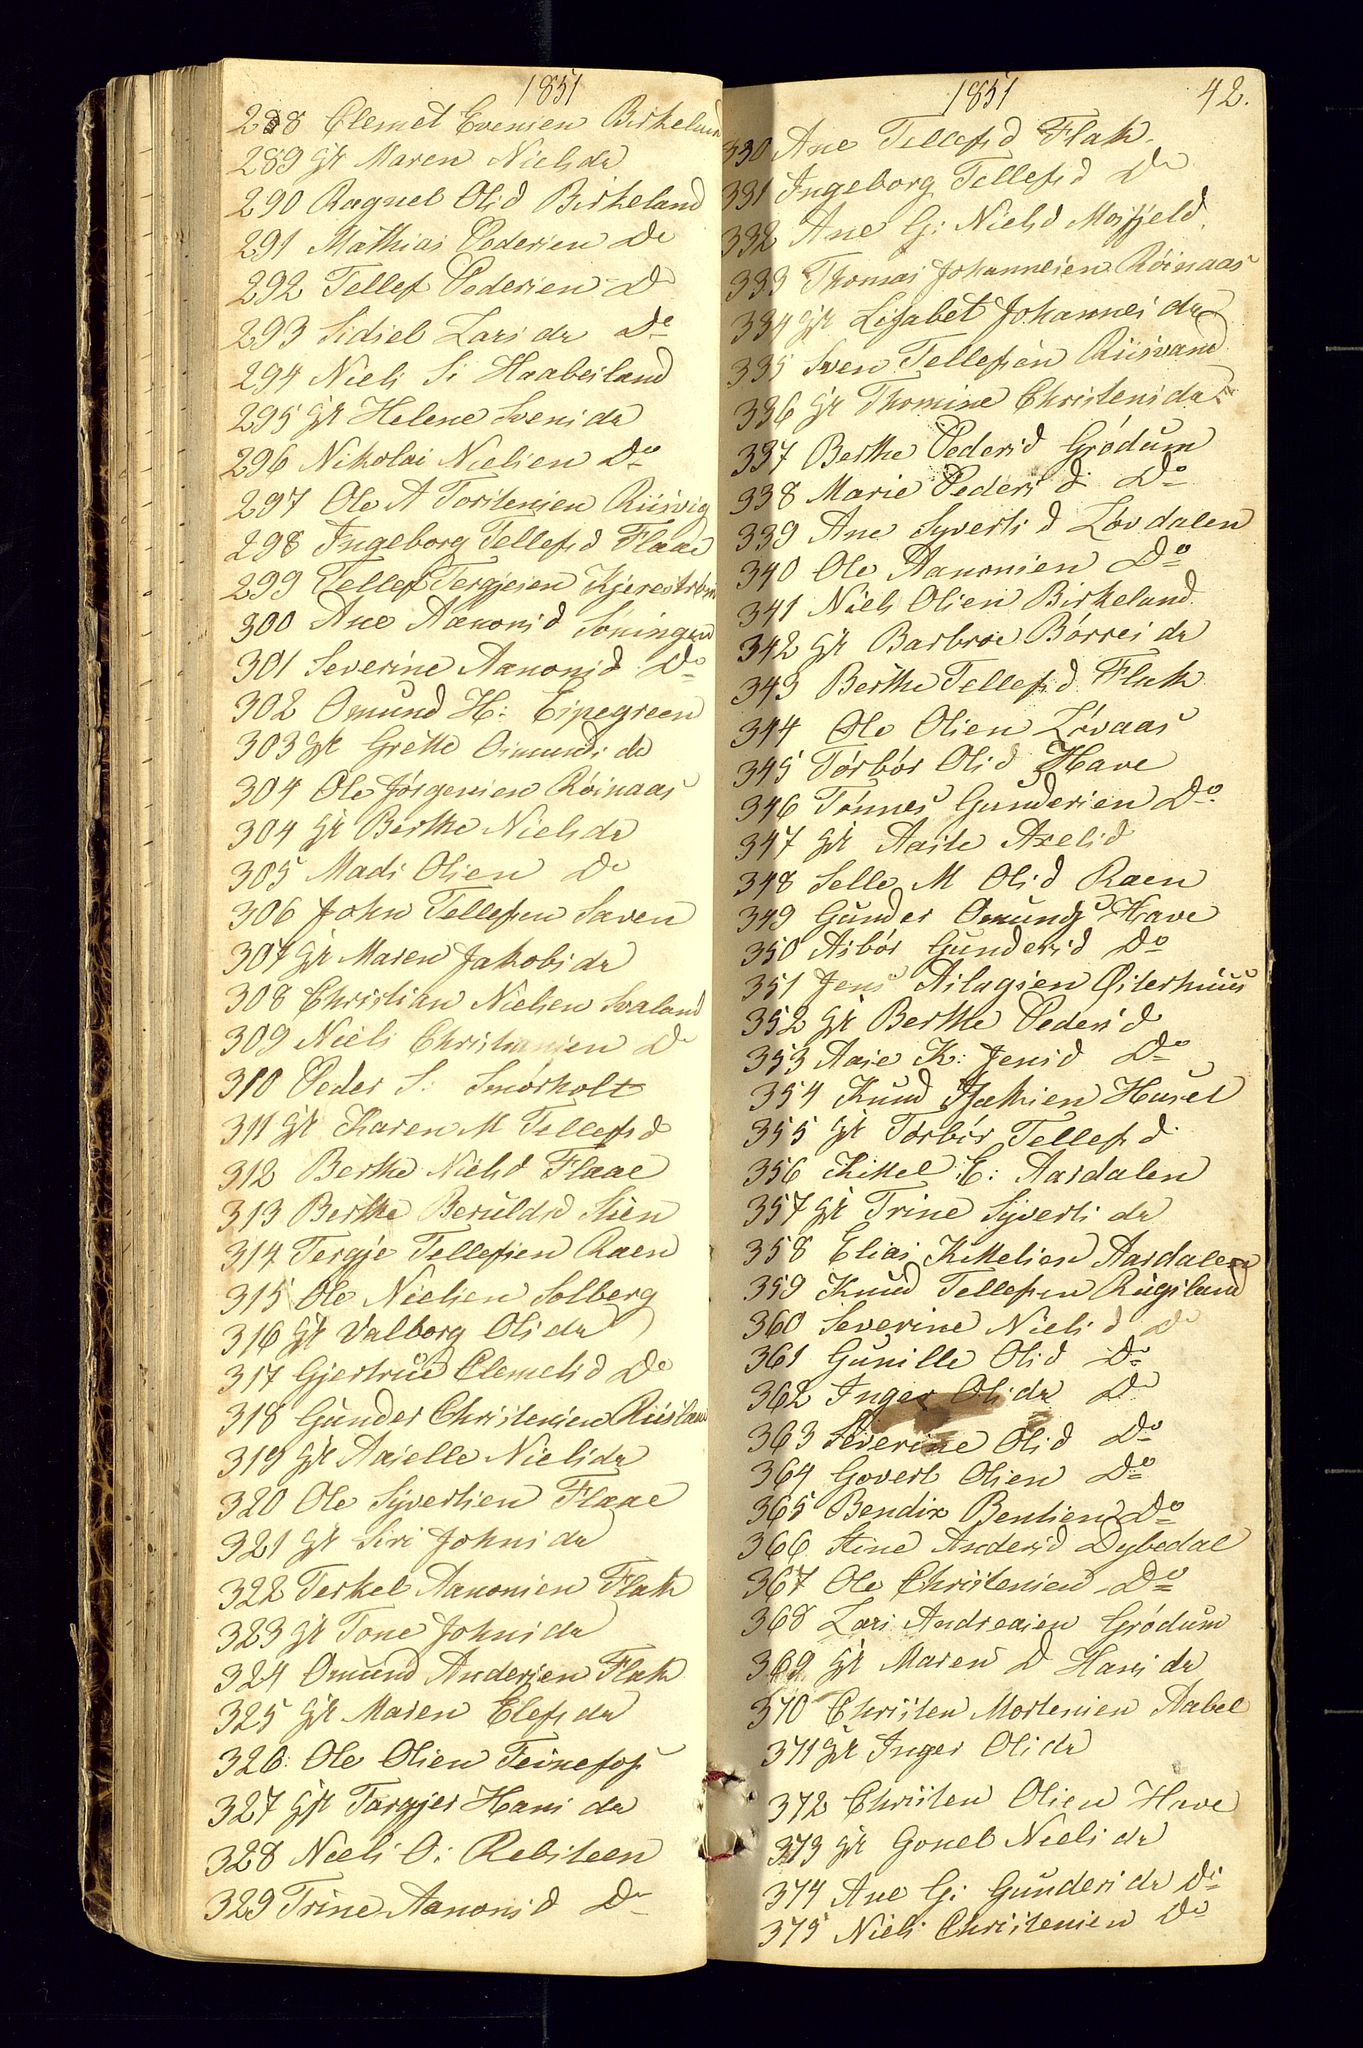 1851
288 Clemet Evensen Birkeland
289 Gt Maren Nielsda
290 Raquel Olsd Birkeland
291 Mathias Pedersen Do
292 Tellef Pedersen Do
293 Sidsel Larsda Do
294 Niels S: Haabesland
295 Gt Helene Svensda
296 Nikolai Nielsen Do
297 Ole A Torstensen Riisvig
298 Ingeborg Tellefsd Flaae
299 Tellef Tergjesen Kjerestrøm
300 Ane Aanonsd Soningen
301 Severine Aanonsd Do
302 Omund H: Eipegreen
303 Gt Grethe Osmundsda
304 Ole Jørgensen Röinaas
304 Gt Berthe Nielsda
305 Mads Olsen Do
306 John Tellefsen Saven
307 Gt Maren Jakobsda
308 Christian Nielsen Svaland
309 Niels Christiansen Do
310 Peder S: Smörholt
311 Gt Karen M Tellefsd
312 Berthe Nielsd Flaae
313 Berthe Beruldsd Stien
314 Tergje Tellefsen Raen
315 Ole Nielsen Solberg
316 Gt Valborg Olsda
317 Gjertrud Clemetsd Do
318 Gunder Christensen Riisland
319 Gt Asielle Nielsda
320 Ole Syvertsen Flaae
321 Gt Siri Johnsda
322 Terkel Aanonsen Flak
323 Gt Tone Johnsda
324 Omund Andersen Flak
325 Gt Maren Elefsda
326 Ole Olsen Teinefos
327 Gt Targjer Hansda
328 Niels O: Rebsteen
329 Trine Aanonsd Do
1851 42.
330 Ane Tellefsd Flak
331 Ingeborg Tellefsd Do
332 Ane G: Nielsd Mosfjeld
333 Thomas Johannesen Röinaas
334 Gt Lisabet Johannesda
335 Sven Tellefsen Riisvand
336 Gt Thomine Christensda
337 Berthe Pedersd Grödum
338 Marie Pedersd Do
339 Ane Syvertsd Lövdalen
340 Ole Aanonsen Do
341 Niels Olsen Birkeland
342 Gt Barbroe Börresda
343 Berthe Tellefsd Flak
344 Ole Olsen Lövaas
345 Törbör Olsd Have
346 Tönnes Gundersen Do
347 Gt Aaste Axelsd
348 Selle M Olsd Raen
349 Gunder Omunds Have
350 Asbör Gundersd Do
351 Jens Aslagsen Østerhuus
352 Gt Berthe Pedersd
353 Aase K: Jensd Do
354 Knud Huset
355 Gt Torbör Tellefsd
356 Kittel E: Aasdalen
357 Gt Trine Syvertsda
358 Elias Kittelsen Aasdalen
359 Knud Tellefsen Rugsland
360 Severine Nielsd Do
361 Gunille Olsd Do
362 Inger Olsda Do
363 Severine Olsd Do
364 Govert Olsen Do
365 Bendix Bentsen Do
366 Stine Andersd Dybedal
367 Ole Christensen Do
368 Lars Andreasen Grödum
369 Gt Maren D Hansda
370 Christen Mortensen Aabel
371 Gt Inger Olsda
372 Christen Olsen Have
373 Gt Gonel Nielsda
374 Ane G: Gundersda Do
375 Niels Christensen Do